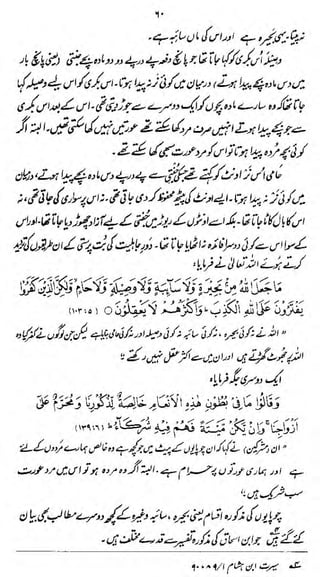 ۶۰
نہ پیتا۔ یہی بحیرہ ہے اور اس کی ماں سائبہ ہے۔
وصیلہ اُس بکری کو کہا جاتا تھا جو پانچ دفعہ پے در پے دو دو مادہ بچے جنتی (یعنی پانچ بار
میں دس مادہ بچے پیدا ہوتے) درمیان میں کوئی نر نہ پیدا ہوتا۔ اس بکری کو اس لیے وصیلہ کہا
جاتا تھا کہ وہ سارے مادہ بچوں کو ایک دوسرے سے جوڑ دیتی تھی۔ اس کے بعد اس بکری
سے جو بچے پیدا ہوتے انہیں صرف مرد کھا سکتے تھے عورتیں نہیں کھا سکتی تھیں۔ البتہ اگر
کوئی بچہ مُردہ پیدا ہوتا تو اس کو مرد عورت سبھی کھا سکتے تھے۔
حامی اُس نر اونٹ کو کہتے تھے جس کی جُفتی سے پے در پے دس مادہ بچے پیدا ہوتے، درمیان
میں کوئی نر نہ پیدا ہوتا۔ ایسے اونٹ کی پیٹھ محفوظ کر دی جاتی تھی۔ نہ اس پر سواری کی جاتی تھی، نہ
اس کا بال کاٹا جاتا تھا۔ بلکہ اسے اونٹوں کے ریوڑ میں جُفتی کے لیے آزاد چھوڑ دیا جاتا تھا، اور اس
کے سوا اس سے کوئی دوسرا فائدہ نہ اٹھایا جاتا تھا۔ دورِ جاہلیت کی بُت پرستی کے ان طریقوں کی تردید
کرتے ہوئے اللہ تعالیٰ نے فرمایا؂
مَا جَعَلَ اللّٰهُ مِنْۢ بَحِيْرَةٍ وَّلَا سَآئِبَةٍ وَّلَا وَصِيْلَةٍ وَّلَا حَامٍ وَّلٰكِنَّ الَّذِيْنَ كَفَرُوْا
يَفْتَرُوْنَ عَلَى اللّٰهِ الْكَذِبَ ؕ وَاَكْثَرُهُمْ لَا يَعْقِلُوْنَ ○ (۱۰۳:۵)
"اللہ نے نہ کوئی بحیرہ، نہ کوئی سائبہ نہ کوئی وصیلہ اور نہ کوئی حامی بنایا ہے لیکن جن لوگوں نے کفر کیا وہ
اللہ پر جھوٹ گھڑتے ہیں اور ان میں سے اکثر عقل نہیں رکھتے"؂
ایک دوسری جگہ فرمایا؂
وَقَالُوْا مَا فِيْ بُطُوْنِ هٰذِهِ الْاَنْعَامِ خَالِصَةٌ لِّذُكُوْرِنَا وَمُحَرَّمٌ عَلٰٓى
اَزْوَاجِنَا ۚ وَاِنْ يَّكُنْ مَّيْتَةً فَهُمْ فِيْهِ شُرَكَآءُ ؕ (۱۳۹:۶)
"ان (مشرکین) نے کہا کہ ان چوپایوں کے پیٹ میں جو کچھ ہے وہ خالص ہمارے مَردوں کے لئے
ہے اور ہماری عورتوں پر حرام ہے۔ البتہ اگر وہ مردہ ہو تو اس میں مرد عورت
سب شریک ہیں"؂
چوپایوں کی مذکورہ اقسام یعنی بحیرہ، سائبہ وغیرہ کے کچھ دوسرے مطالب بھی بیان
کئے گئے ہیں جو ابن اسحاق کی مذکورہ تفسیر سے قدرے مختلف ہیں۔
سیرت ابن ہشام ۱/۸۹، ۹۰